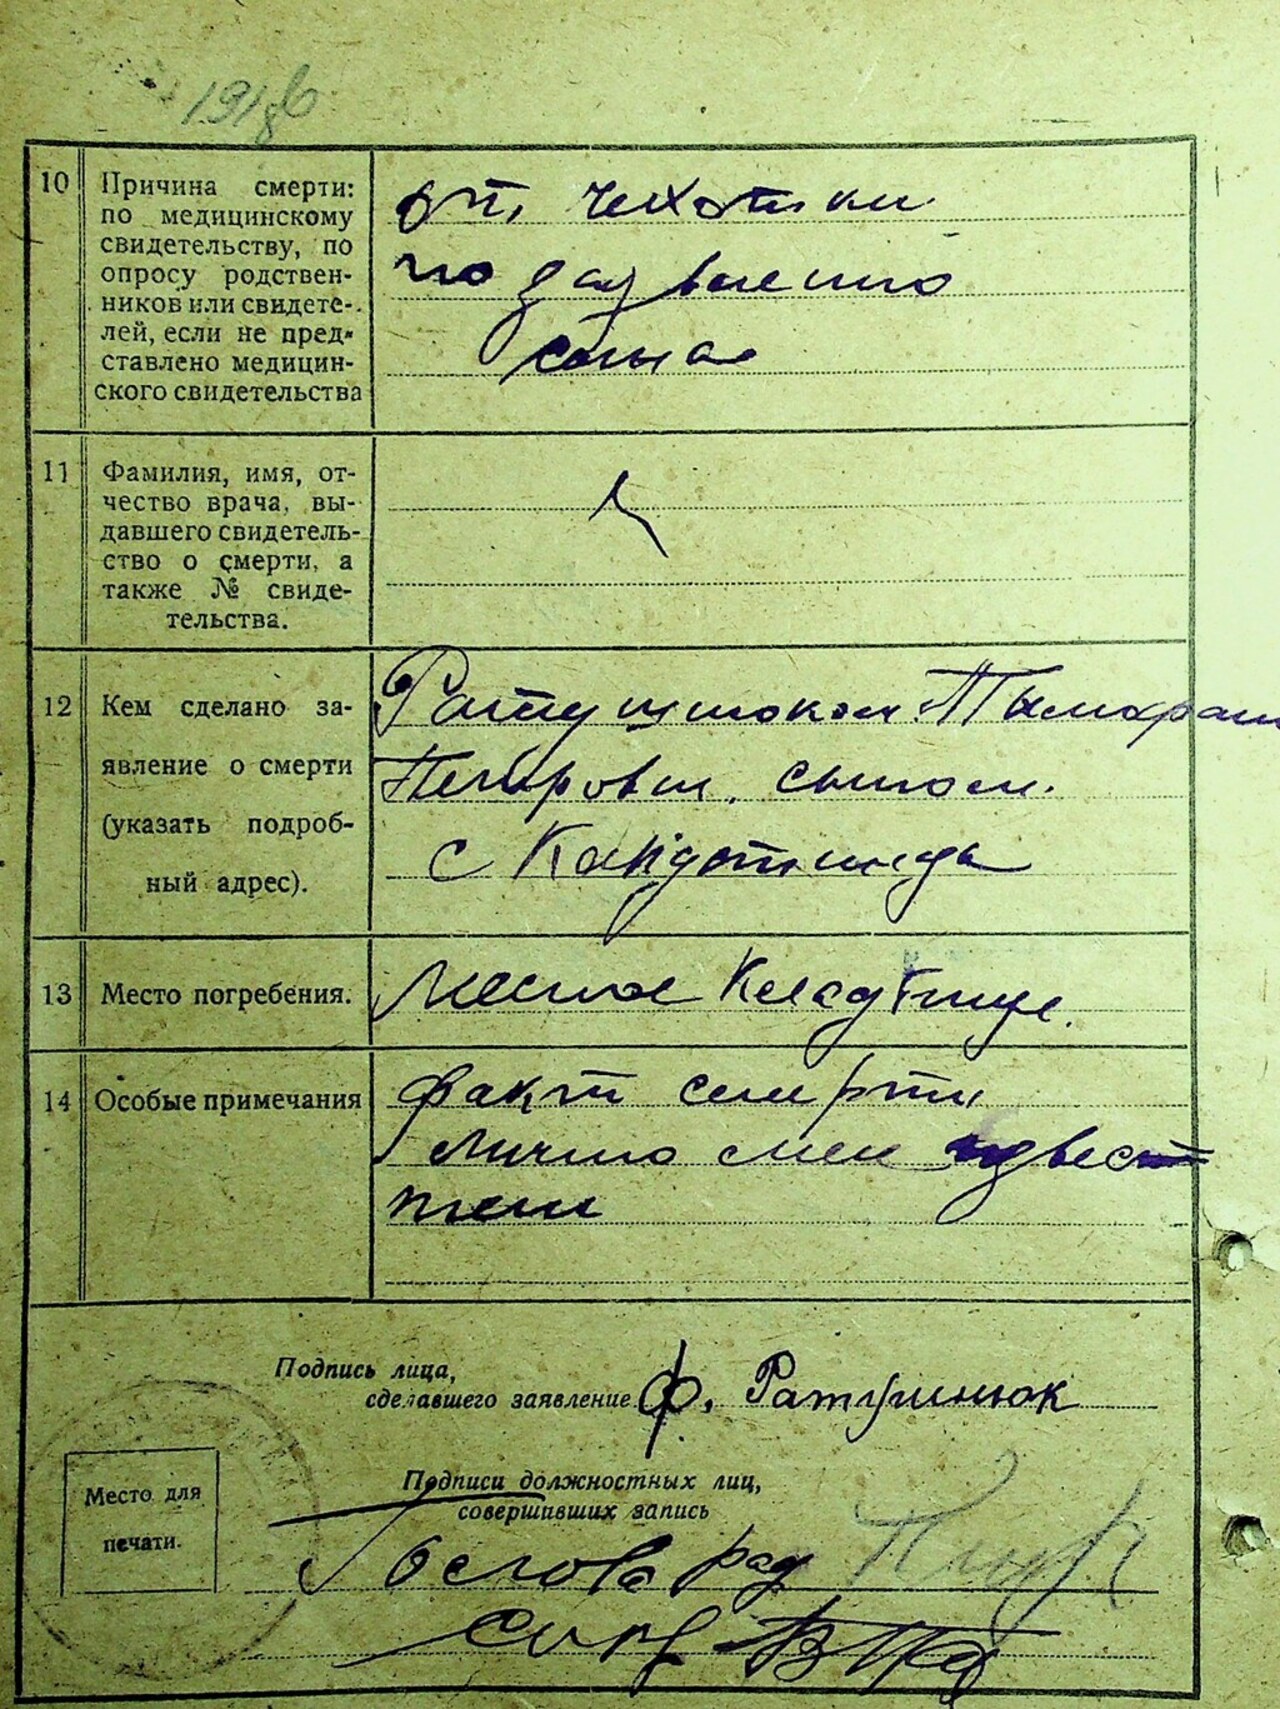 10
Причина смерти:
по медицинскому
свидетельству, по
опросу родствен-
ников или свидете-
лей, если не пред-
ставлено медицин-
ского свидетельства
от чехотки
по заявлению
сына
11
Фамилия, имя, от-
чество врача, вы-
давшего свидетель-
ство о смерти, а
также № свиде-
тельства.
12
Кем сделано за-
явление о смерти
(указать подроб-
ный адрес).
Ратушнюком
Петрович, сыном.
с
13
Место погребения.
Месное Кладбище.
14
Особые примечания
факт смерти
лично мен извест
Подпись лица,
сделавшего заявление Ф. Ратушнюк
Подписи должностных лиц,
совершивших запись
Место для
печати.
Голова